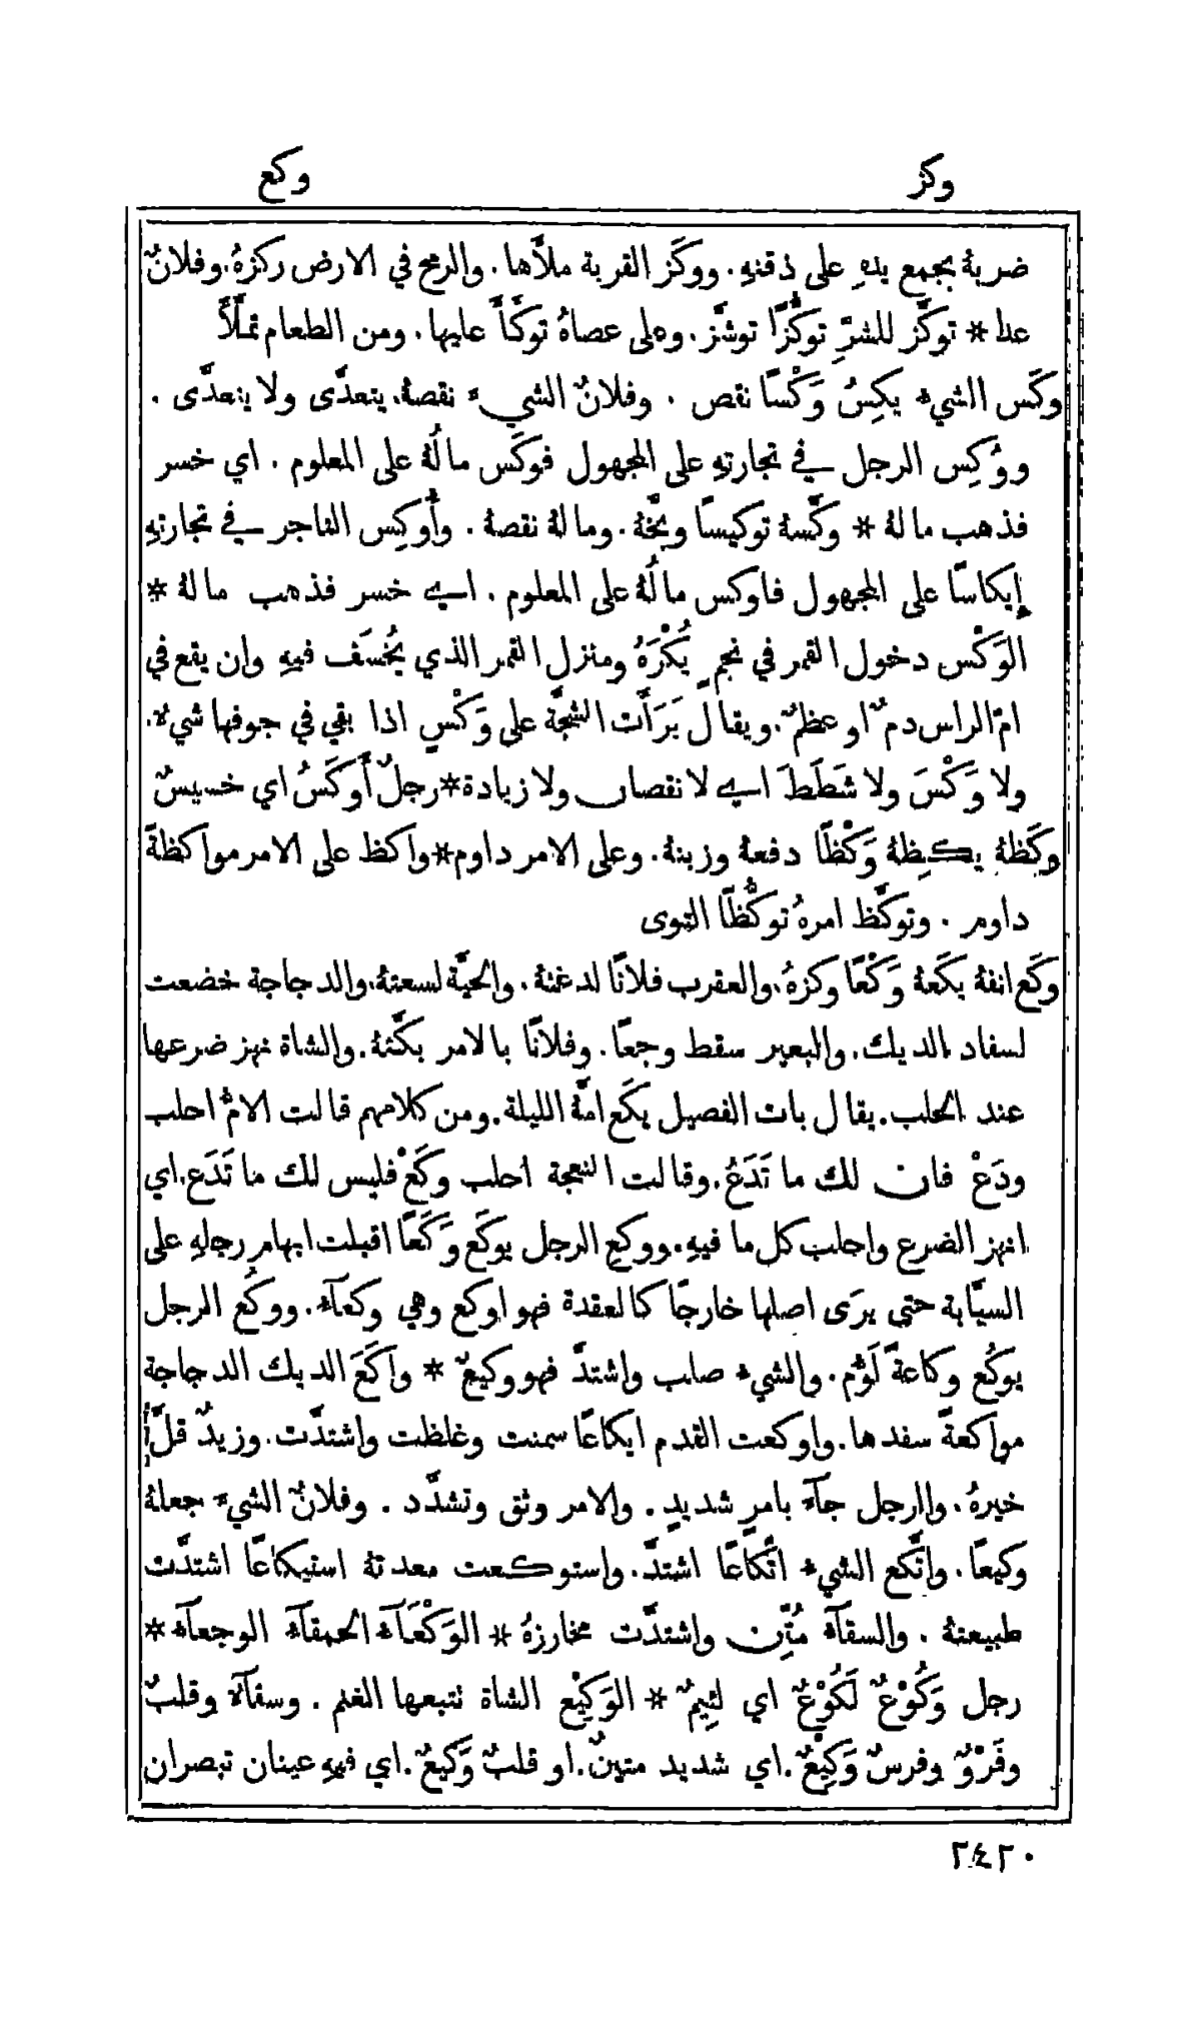 وكز
وكع
ضربهُ بجمع يدهِ على ذقنهِ. ووكَز القربة ملأَها. والرمح في الارض ركزهُ. وفلانٌ
عدا * توكَّز للشرِّ توكُّزًا توشَّز. وعلى عصاهُ توكَّأَ عليها. ومن الطعام تملَّأَ
وكَس الشيءُ يكِسُ وَكْسًا نقص . وفلانٌ الشيءَ نقصهُ. يتعدَّى ولا يتعدَّى .
ووُكِس الرجل في تجارتهِ على المجهول فوكَس مالُهُ على المعلوم . اي خسر
فذهب مالهُ * وكَّسهُ توكيسًا وبَّخهُ. ومالهُ نقصهُ . وأُوكِس التاجر في تجارتهِ
إِيكاسًا على المجهول فاوكس مالُهُ على المعلوم . اي خسر فذهب مالهُ *
الوَكْس دخول القمر في نجمٍ يُكْرَهُ ومنزل القمر الذي يُخسَف فيهِ وان يقع في
امّ الراس دمٌ او عظمٌ. ويقال بَرَأَت الشجَّة على وَكْسٍ اذا بقي في جوفها شيءٌ.
ولا وَكْسَ ولا شَطَطَ اي لا نقصان ولا زيادة * رجلٌ أَوكَسُ اي خسيسٌ
وكَظهُ يكِظهُ وَكْظًا دفعهُ وزبنهُ. وعلى الامر داوم * واكظ على الامر مواكظةً
داوم . وتوكَّظ امرهُ توكُّظًا التوى
وكَع انفهُ يكَعهُ وَكْعًا وكزهُ. والعقرب فلانًا لدغتهُ. والحيَّة لسعتهُ. والدجاجة خضعت
لسفاد الديك. والبعير سقط وجعًا. وفلانًا بالامر بكَّتهُ. والشاة نهز ضرعها
عند الحلب. يقال بات الفصيل يكَع امَّهُ الليلة. ومن كلامهم قالت الامُّ احلب
ودَعْ فان لك ما تَدَعُ. وقالت النعجة احلب وكَعْ فليس لك ما تَدَع. اي
انهز الضرع واحلب كل ما فيهِ. ووكِع الرجل يوكَع وَكَعًا اقبلت ابهام رجلهِ على
السبَّابة حتى يرَى اصلها خارجًا كالعقدة فهو اوكع وهي وكعآء. ووكُع الرجل
يوكُع وكاعةً لَؤُم. والشيءُ صلب واشتدَّ فهو وكيعٌ * واكَعَ الديك الدجاجة
مواكعةً سفدها. واوكعت القدم ايكاعًا سمنت وغلظت واشتدَّت. وزيدٌ قلَّ
خيرهُ. والرجل جآءَ بامرٍ شديدٍ . والامر وثق وتشدَّد . وفلانٌ الشيءَ جعلهُ
وكيعًا. واتَّكع الشيءُ اتّكاعًا اشتدَّ. واستوكعت معدتهُ استيكاعًا اشتدَّت
طبيعتهُ . والسقآءُ مُتِّن واشتدَّت مخارزهُ * الوَكْعَآء الحمقآءُ الوجعآء *
رجل وَكُوْعٌ لَكُوْعٌ اي لئِيمٌ * الوَكِيْع الشاة تتبعها الغنم . وسقآءٌ وقلبٌ
وفَرْوٌ وفرسٌ وَكِيْعٌ. اي شديد متينٌ. او قلبٌ وَكيعٌ. اي فيهِ عينان تبصران
٢٤٢٠